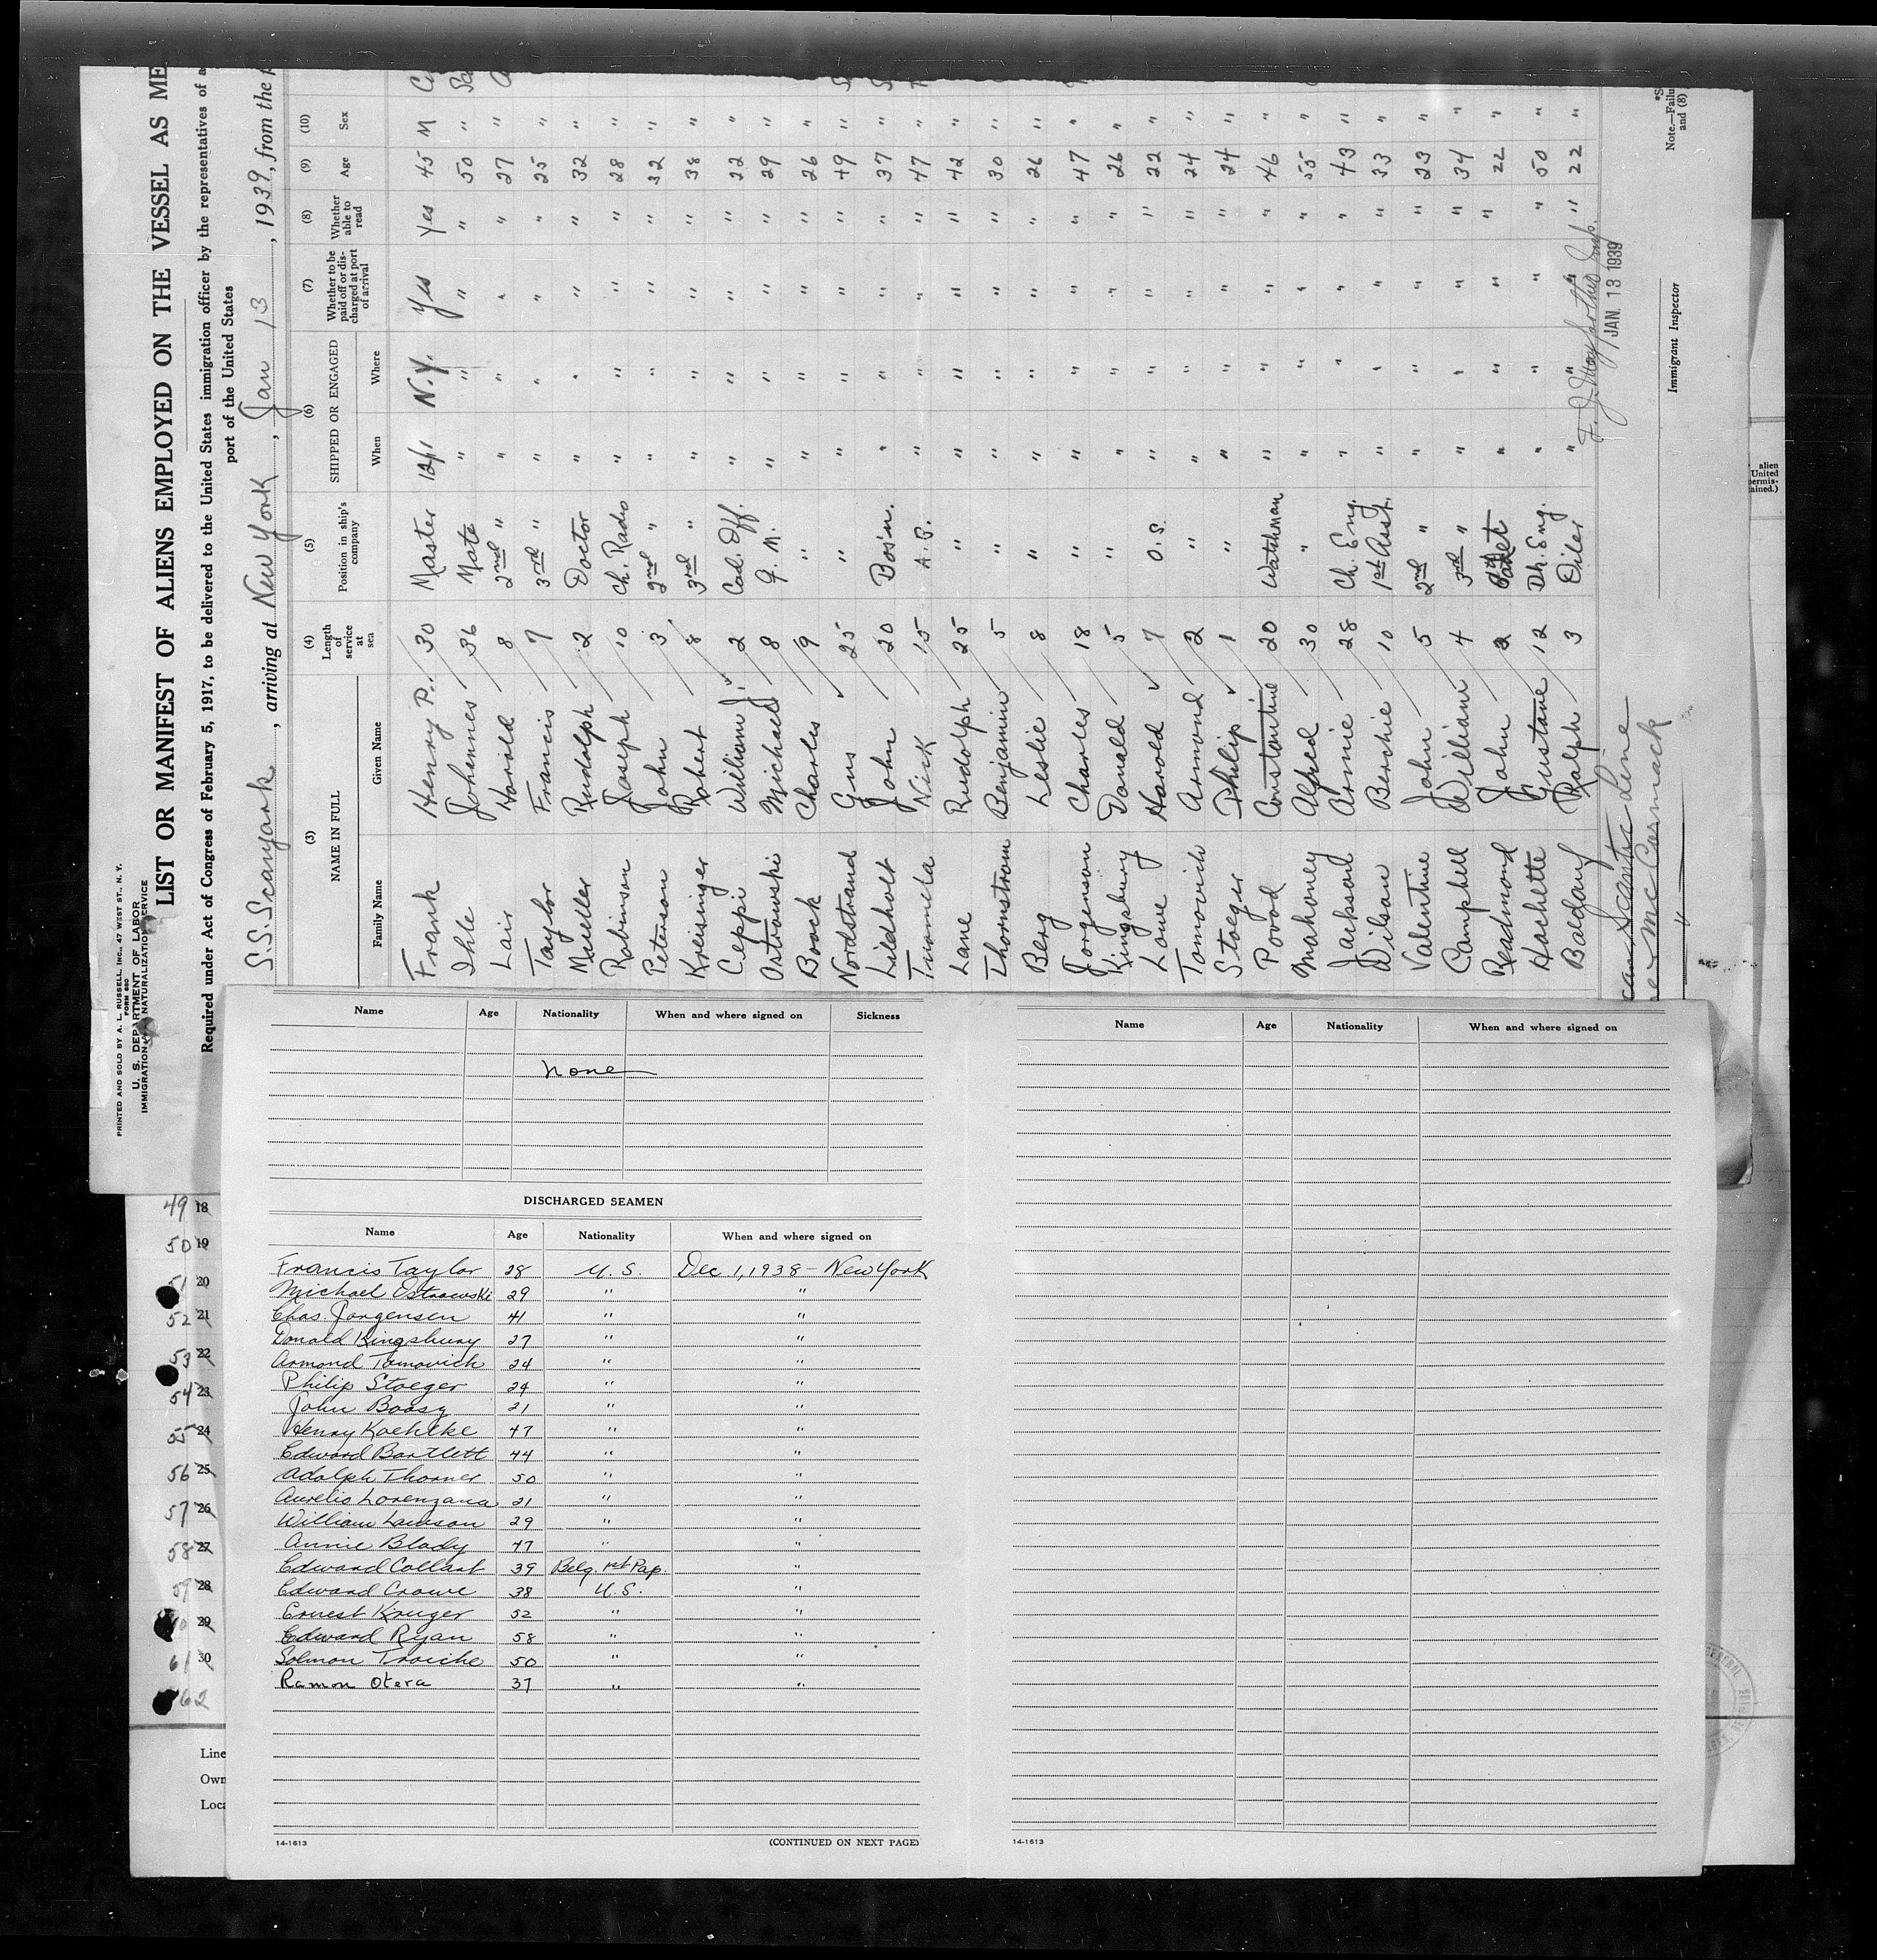 PRINTED AND SOLD BY A. L. RUSSELL, INC., 47 WEST ST., N. Y.
FORM 680
U. S. DEPARTMENT OF LABOR
IMMIGRATION NATURALIZATION SERVICE
LIST OR MANIFEST OF ALIENS EMPLOYED ON THE VESSEL AS ME
Required under Act of Congress of February 5, 1917, to be delivered to the United States immigration officer by the representatives of a
port of the United States
S.S. Scanyork, arriving at New York, Jan 13, 1939, from the
(3) (4) (5) (6) (7) (8) (9) (10)
NAME IN FULL Length of service at sea Position in ship's company SHIPPED OR ENGAGED Whether to be paid off or discharged at port of arrival Whether able to read Age Sex
Family Name Given Name When Where
Frank Henry P. 30 Master 12/1 N.Y. Yes Yes 45 M
Ihle Johannes 36 Mate " " " " 50 "
Lair Harold 8 2nd " " " " " 27 "
Taylor Francis 7 3rd " " " " " 25 "
Mueller Rudolph 2 Doctor " " " " 32 "
Robinson Joseph 10 Ch. Radio " " " " 28 "
Peterson John 3 2nd " " " " " 32 "
Kreisinger Robert 8 3rd " " " " " 38 "
Ceppi William J. 2 Cad. Off. " " " " 22 "
Ostrowski Michael 8 Q. M. " " " " 29 "
Boock Charles 9 " " " " " 26 "
Nordstrand Gus 25 " " " " " 49 "
Lidholt John 20 Bos'n. " " " " 37 "
Nick 15 A.B. " " " " 47 "
Lane Rudolph 25 " " " " " 42 "
Thornstrom Benjamin 5 " " " " " 30 "
Berg Leslie 8 " " " " " 26 "
Jorgenson Charles 18 " " " " " 47 "
Kingsbury Donald 5 " " " " " 26 "
Lowe Harold 7 O.S. " " " " 22 "
Tomovich Armond 2 " " " " " 24 "
Stoeger Philip 1 " " " " " 24 "
Povod Constantine 20 Watchman " " " " 46 "
Mahoney Alfred 30 " " " " " 55 "
Jackson Armie 28 Ch. Eng. " " " " 43 "
Wilson Berchie 10 1st Asst. " " " " 33 "
Valentine John 5 2nd " " " " " 23 "
Campbell William 4 3rd " " " " " 34 "
Readmond John 2 Cadet " " " " 22 "
Hachette Gustave 12 Dk. Eng. " " " " 50 "
Baldauf Ralph 3 Oiler " " " " 22 "
JAN. 13 1939
Immigrant Inspector
Note.—Failu
and (8)
can Scantic Line
McCormack
"
alien
United
permis-
ained.)
Name Age Nationality When and where signed on Sickness
None
DISCHARGED SEAMEN
Name Age Nationality When and where signed on
Francis Taylor 28 U.S. Dec 1, 1938 - New York
Michael Ostrowski 29 " "
Chas. Jorgensen 41 " "
Donald Kingsbury 27 " "
Armond Tomovich 24 " "
Philip Stoeger 24 " "
John Boasy 21 " "
Henry Koehlke 47 " "
Edward Bartlett 44 " "
Adolph Thorner 50 " "
Aurelio Lorenzana 21 " "
William Lawson 29 " "
Annie Blady 47 " "
Edward Collart 39 Belg. 1st Pap. "
Edward Crowe 38 U.S. "
Ernest Kruger 52 " "
Edward Ryan 58 " "
Solmon Troiche 50 " "
Ramon Otera 37 " "
14-1613 (CONTINUED ON NEXT PAGE)
Name Age Nationality When and where signed on
14-1613
49 18
50 19
51 20
52 21
53 22
54 23
55 24
56 25
57 26
58 27
59 28
60 29
61 30
62
Line
Own
Loca